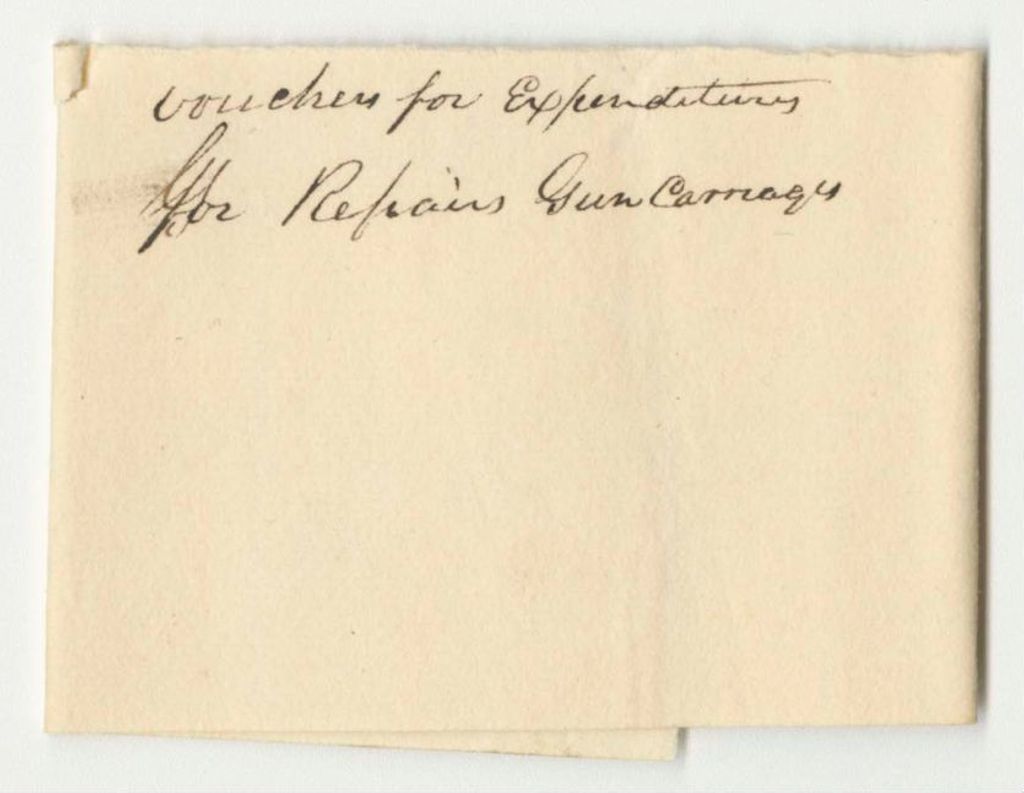 vouchers for Expenditures
for Repairs Gun Carriages